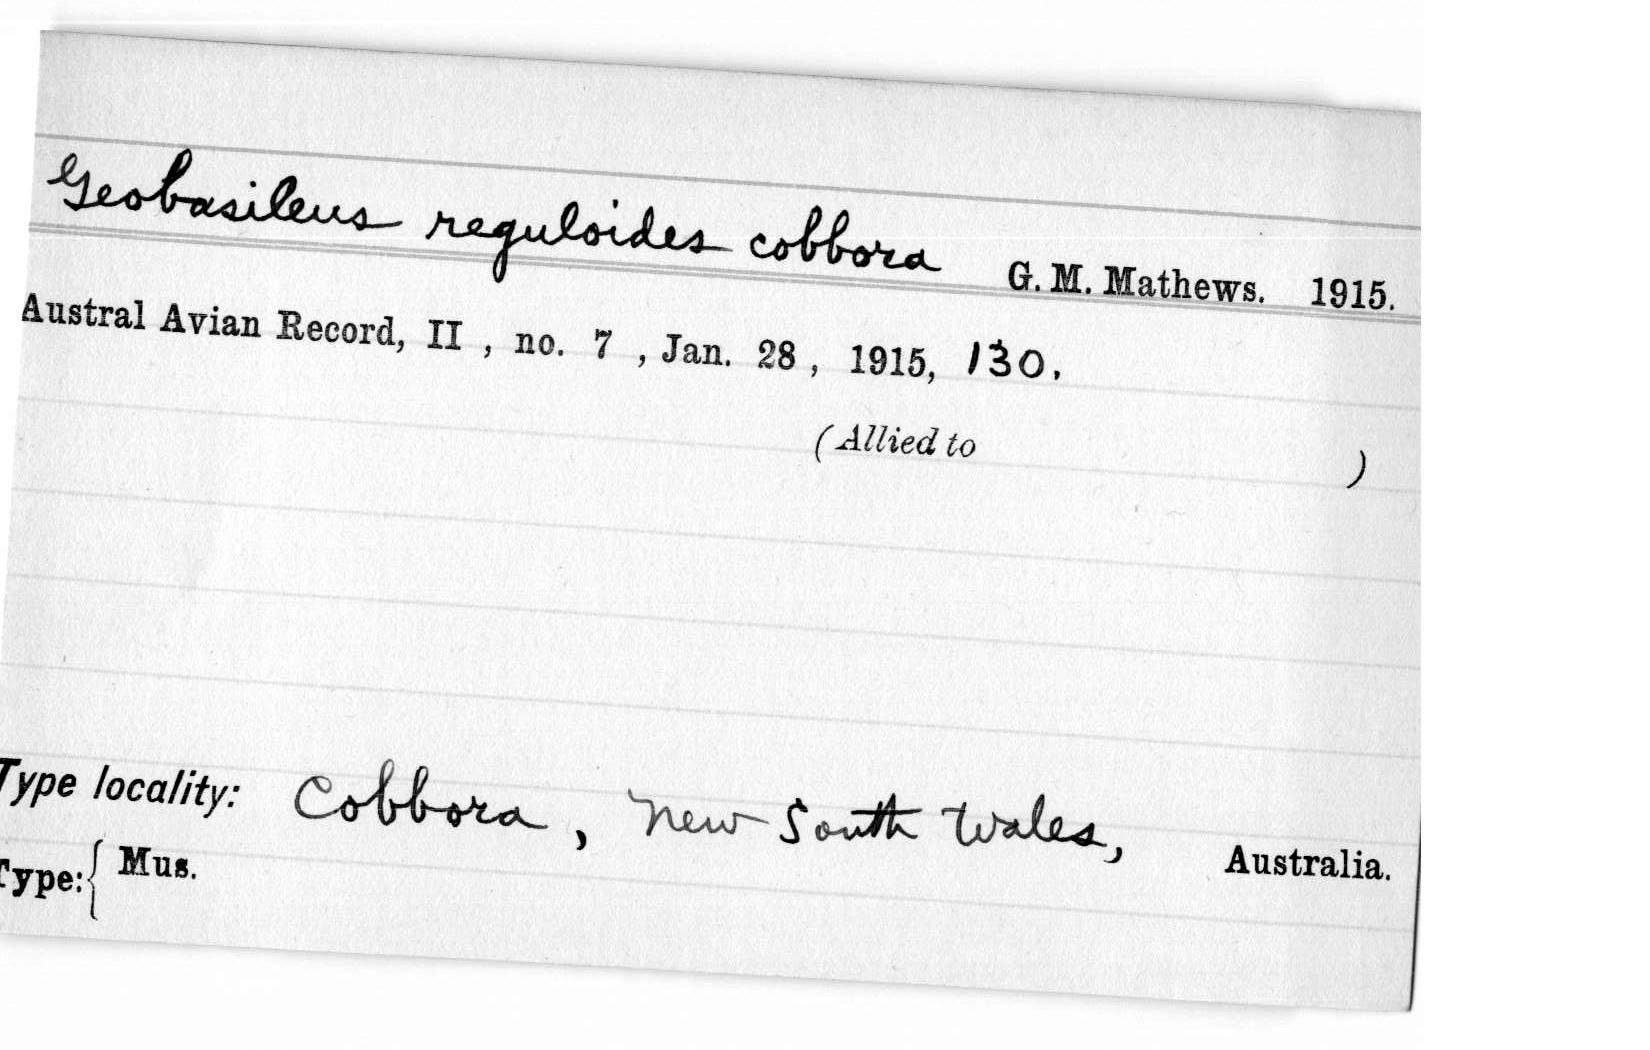 Geobasileus reguloides cobbora G. M. Mathews. 1915.
Austral Avian Record, II , no. 7 , Jan. 28 , 1915, 130.
(Allied to )
Type locality: Cobbora, New South Wales, Australia.
Type: { Mus.